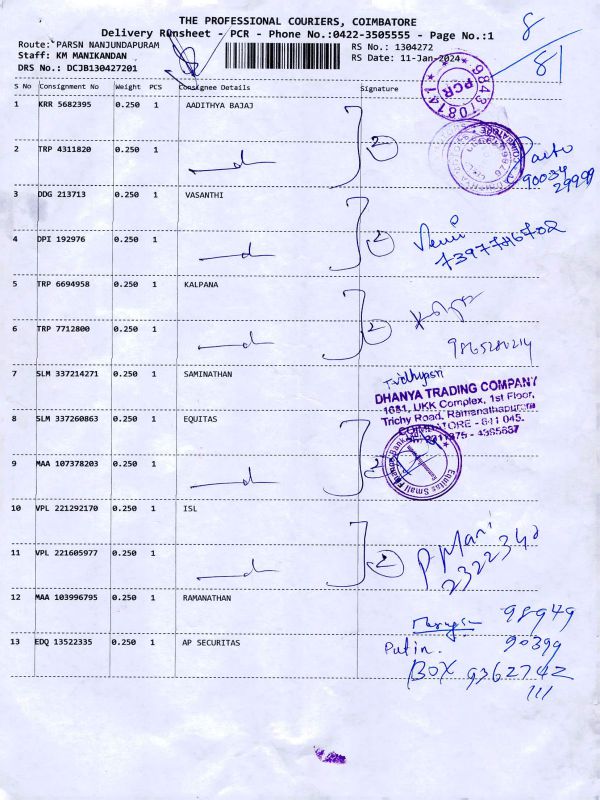 THE PROFESSIONAL COURIERS, COIMBATORE
Delivery Runsheet - PCR - Phone No.:0422-3505555 - Page No.:1
Route: PARSN NANJUNDAPURAM
RS No.: 1304272
Staff: KM MANIKANDAN
RS Date: 11-Jan-2024
DRS No.: DCJB130427201
8
81
9843708141
PCR
S No Consignment No Weight PCS Consignee Details Signature
1 KRR 5682395 0.250 1 AADITHYA BAJAJ
2 TRP 4311820 0.250 1
2
90034
29999
3 DDG 213713 0.250 1 VASANTHI
4 DPI 192976 0.250 1
2
7397746702
5 TRP 6694958 0.250 1 KALPANA
6 TRP 7712800 0.250 1
2
9865280214
7 SLM 337214271 0.250 1 SAMINATHAN
DHANYA TRADING COMPANY
1681, UKK Complex, 1st Floor,
Trichy Road, Ramanathapuram
COIMBATORE - 641 045.
8 SLM 337260863 0.250 1 EQUITAS
9 MAA 107378203 0.250 1
2
Equitas Small Finance Bank
10 VPL 221292170 0.250 1 ISL
11 VPL 221605977 0.250 1
2
P Mani
2322340
12 MAA 103996795 0.250 1 RAMANATHAN
98949
90399
13 EDQ 13522335 0.250 1 AP SECURITAS
BOX 9362742
111